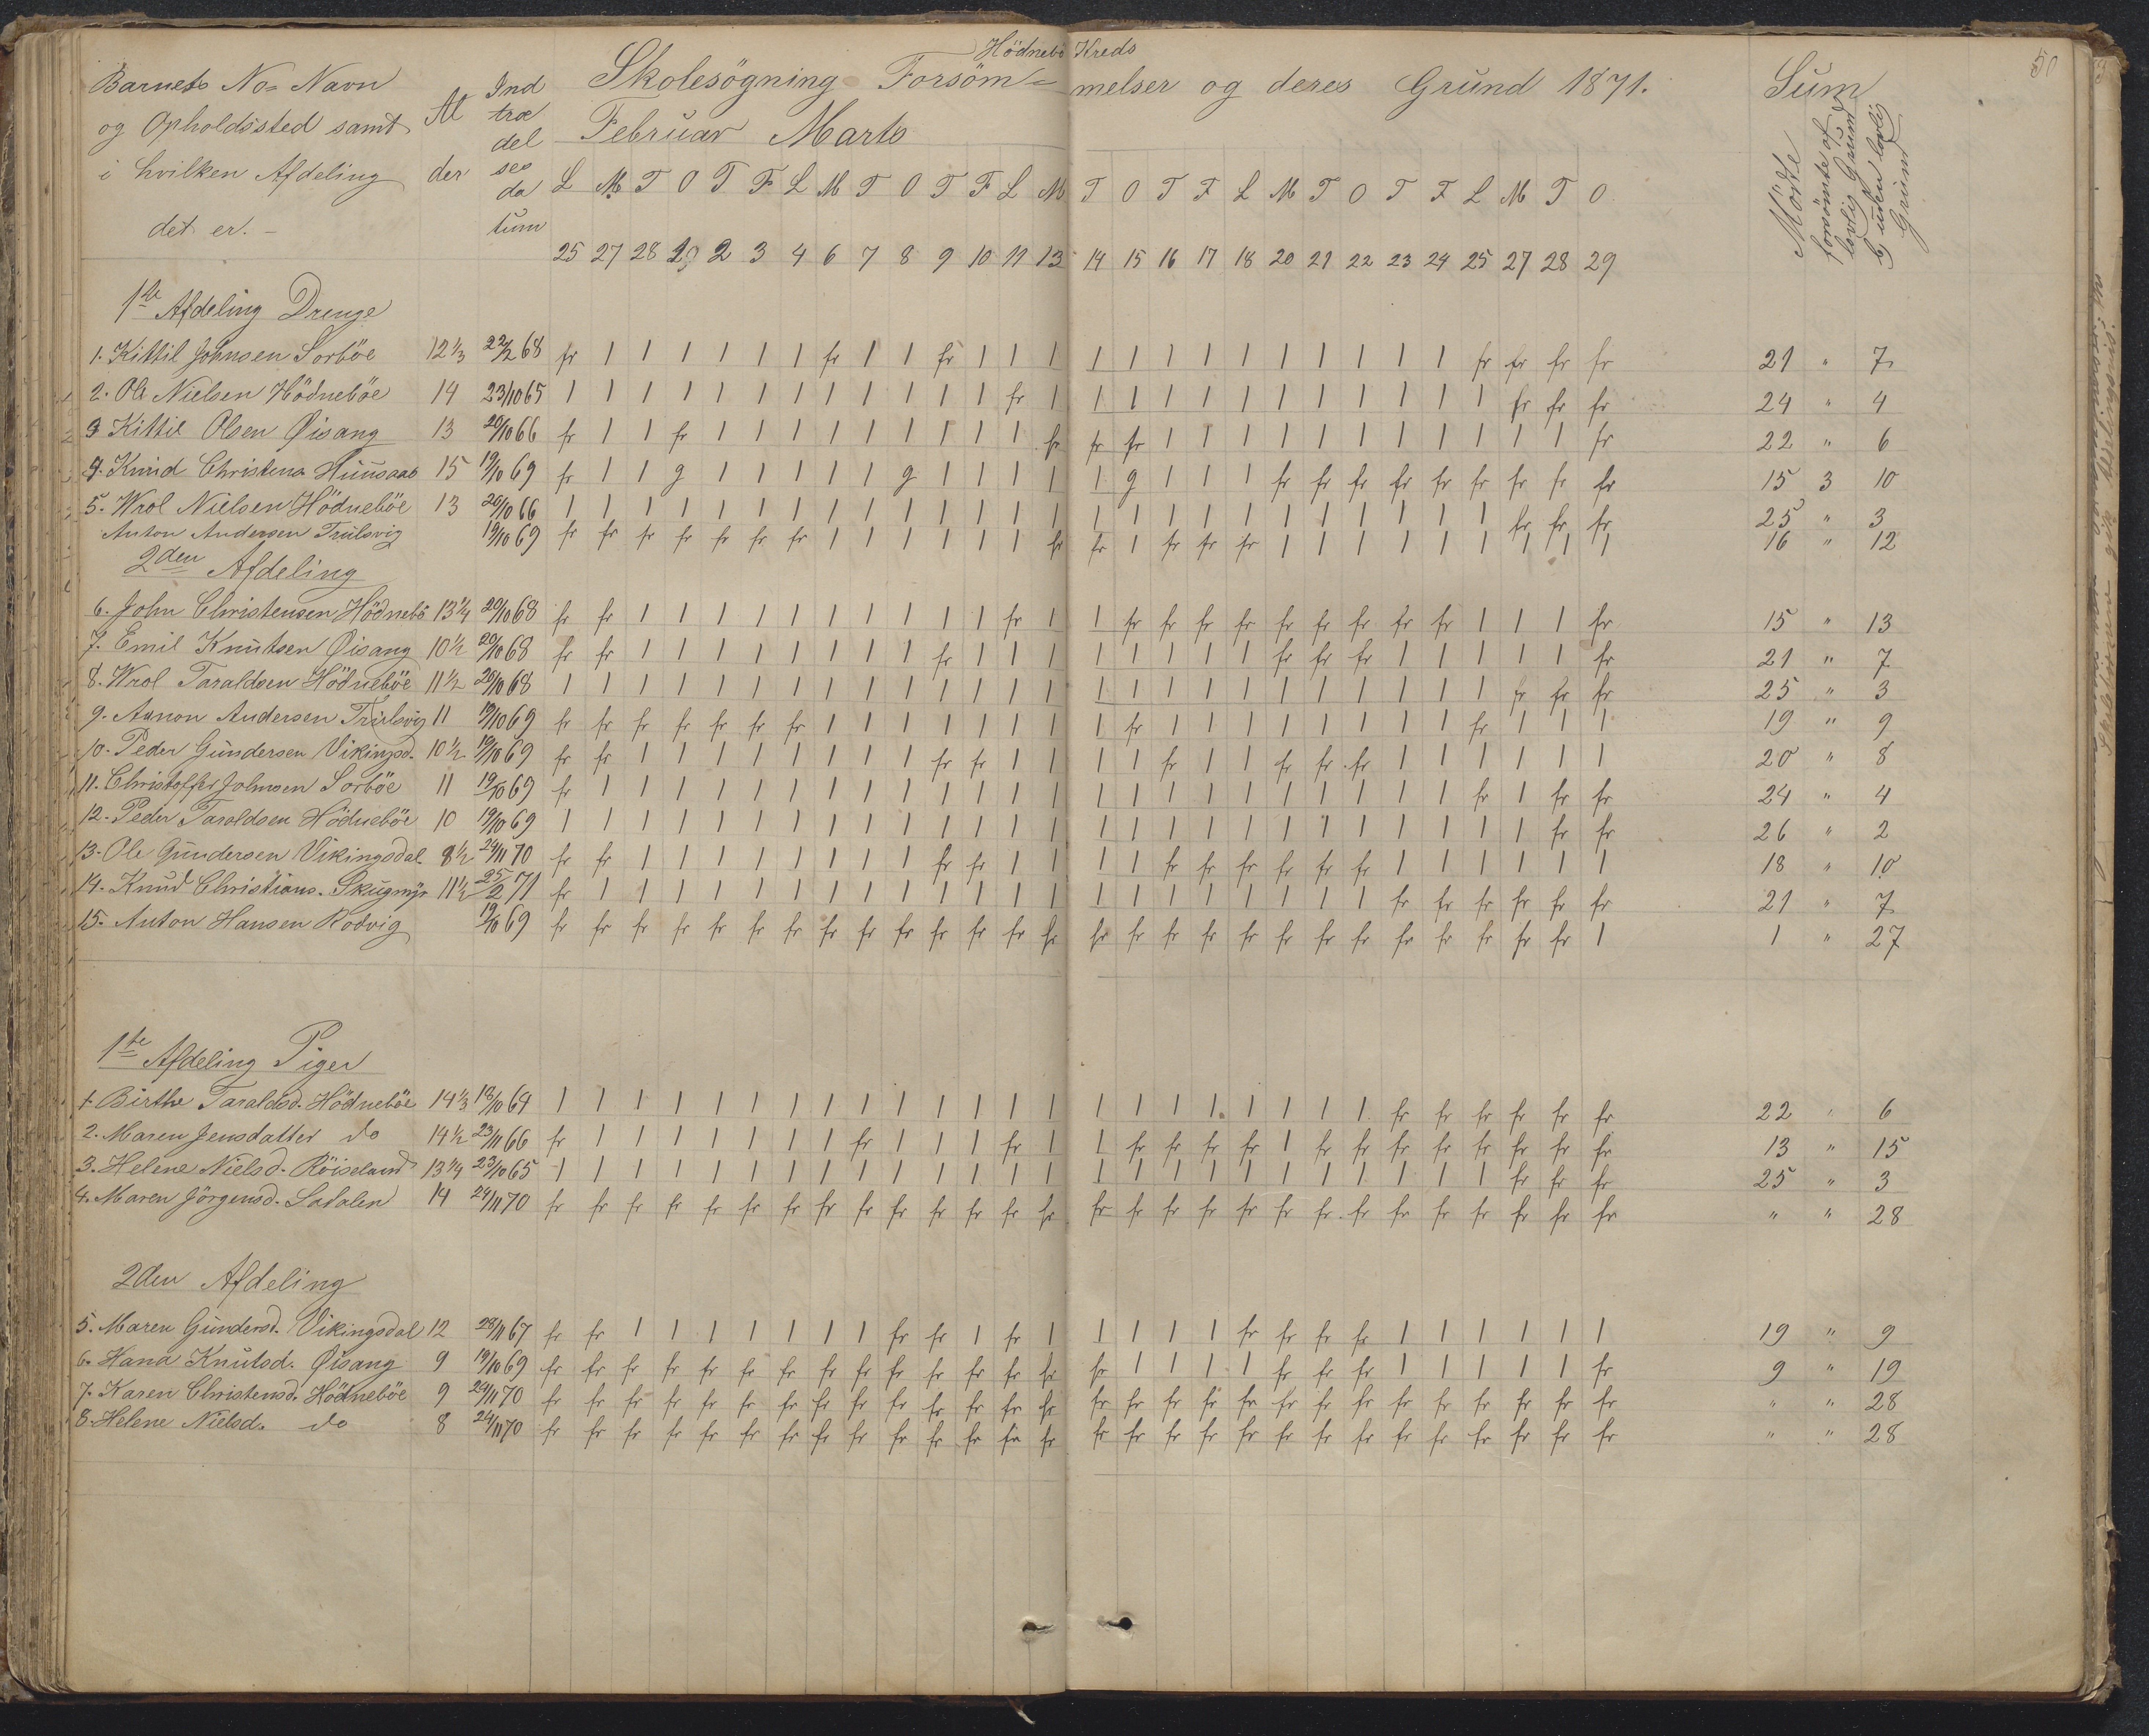 Hödnebö Kreds
50
Barnets No= Navn og Opholdssted samt i hvilken Afdeling det er. –
Al der
Ind træ del ses da tum
Skolesögning Forsöm= melser og deres Grund 1871.
Februar Marts
Sum
Mödte
forsömte af lovlig Grund
b) uden lovlig Grund
L M T O T F L M T O T F L M T O T F L M T O T F L M T O
25 27 28 29 2 3 4 6 7 8 9 10 11 13 14 15 16 17 18 20 21 22 23 24 25 27 28 29
1te Afdeling Drenge
1. Kittil Johnsen Sorböe 12 1/3 22/2 68 fr 1 1 1 1 1 1 fr 1 1 fr 1 1 1 1 1 1 1 1 1 1 1 1 1 fr fr fr fr 21 " 7
2. Ole Nielsen Hödneböe 14 23/10 65 1 1 1 1 1 1 1 1 1 1 1 1 fr 1 1 1 1 1 1 1 1 1 1 1 1 fr fr fr 24 " 4
3 Kittil Olsen Øisang 13 20/10 66 fr 1 1 fr 1 1 1 1 1 1 1 1 1 fr fr fr 1 1 1 1 1 1 1 1 1 1 1 fr 22 " 6
4. Knud Christens Huusaas 15 19/10 69 fr 1 1 g 1 1 1 1 1 g 1 1 1 1 1 g 1 1 1 fr fr fr fr fr fr fr fr fr 15 3 10
5. Wrol Nielsen Hödneböe 13 20/10 66 1 1 1 1 1 1 1 1 1 1 1 1 1 1 1 1 1 1 1 1 1 1 1 1 1 fr fr fr 25 " 3
Anton Andersen Trulsvig 19/10 69 fr fr fr fr fr fr fr 1 1 1 1 1 1 fr fr 1 fr fr fr 1 1 1 1 1 1 1 1 1 16 " 12
2den Afdeling
6. John Christensen Hödnebö 13 1/4 20/10 68 fr fr 1 1 1 1 1 1 1 1 1 1 fr 1 1 fr fr fr fr fr fr fr fr fr 1 1 1 fr 15 " 13
7. Emil Knutsen Øisang 10 1/2 20/10 68 fr fr 1 1 1 1 1 1 1 1 fr 1 1 1 1 1 1 1 1 fr fr fr 1 1 1 1 1 fr 21 " 7
8. Wrol Taraldsen Hödneböe 11 1/2 20/10 68 1 1 1 1 1 1 1 1 1 1 1 1 1 1 1 1 1 1 1 1 1 1 1 1 1 fr fr fr 25 " 3
9. Aanon Andersen Trulsvig 11 19/10 69 fr fr fr fr fr fr fr 1 1 1 1 1 1 1 1 fr 1 1 1 1 1 1 1 1 fr 1 1 1 19 " 9
10. Peder Gundersen Vikingsd. 10 1/2 19/10 69 fr fr 1 1 1 1 1 1 1 1 fr fr 1 1 1 1 fr 1 1 fr fr fr 1 1 1 1 1 1 20 " 8
11. Christoffer Johnsen Sorböe 11 19/10 69 fr 1 1 1 1 1 1 1 1 1 1 1 1 1 1 1 1 1 1 1 1 1 1 1 fr 1 fr fr 24 " 4
12. Peder Taraldsen Hödneböe 10 19/10 69 1 1 1 1 1 1 1 1 1 1 1 1 1 1 1 1 1 1 1 1 1 1 1 1 1 1 fr fr 26 " 2
13. Ole Gundersen Vikingsdal 8 1/2 24/11 70 fr fr 1 1 1 1 1 1 1 1 fr fr 1 1 1 1 fr fr fr fr fr fr 1 1 1 1 1 1 18 " 10
14. Knud Christians. Skugmyr 11 1/2 25/2 71 fr 1 1 1 1 1 1 1 1 1 1 1 1 1 1 1 1 1 1 1 1 1 fr fr fr fr fr fr 21 " 7
15. Anton Hansen Rodvig 19/10 69 fr fr fr fr fr fr fr fr fr fr fr fr fr fr fr fr fr fr fr fr fr fr fr fr fr fr fr 1 1 " 27
1te Afdeling Piger
1 Birthe Taraldsd. Hödneböe 14 1/3 18/10 64 1 1 1 1 1 1 1 1 1 1 1 1 1 1 1 1 1 1 1 1 1 1 fr fr fr fr fr fr 22 " 6
2. Maren Jensdatter do 14 1/2 23/11 66 fr 1 1 1 1 1 1 1 fr 1 1 1 fr 1 1 fr fr fr fr 1 fr fr fr fr fr fr fr fr 13 " 15
3. Helene Nielsd. Röiseland 13 1/4 23/10 65 1 1 1 1 1 1 1 1 1 1 1 1 1 1 1 1 1 1 1 1 1 1 1 1 1 fr fr fr 25 " 3
4. Maren Jörgensd. Ladalen 14 24/11 70 fr fr fr fr fr fr fr fr fr fr fr fr fr fr fr fr fr fr fr fr fr fr fr fr fr fr fr fr " " 28
2den Afdeling
5. Maren Gundersd. Vikingsdal 12 28/11 67 fr fr 1 1 1 1 1 1 1 fr fr 1 fr 1 1 1 1 1 fr fr fr fr 1 1 1 1 1 1 19 " 9
6. Hana Knutsd. Øisang 9 19/10 69 fr fr fr fr fr fr fr fr fr fr fr fr fr fr fr 1 1 1 1 fr fr fr 1 1 1 1 1 fr 9 " 19
7. Karen Christensd. Hödneböe 9 24/11 70 fr fr fr fr fr fr fr fr fr fr fr fr fr fr fr fr fr fr fr fr fr fr fr fr fr fr fr fr " " 28
8. Helene Nielsd. do 8 24/11 70 fr fr fr fr fr fr fr fr fr fr fr fr fr fr fr fr fr fr fr fr fr fr fr fr fr fr fr fr " " 28